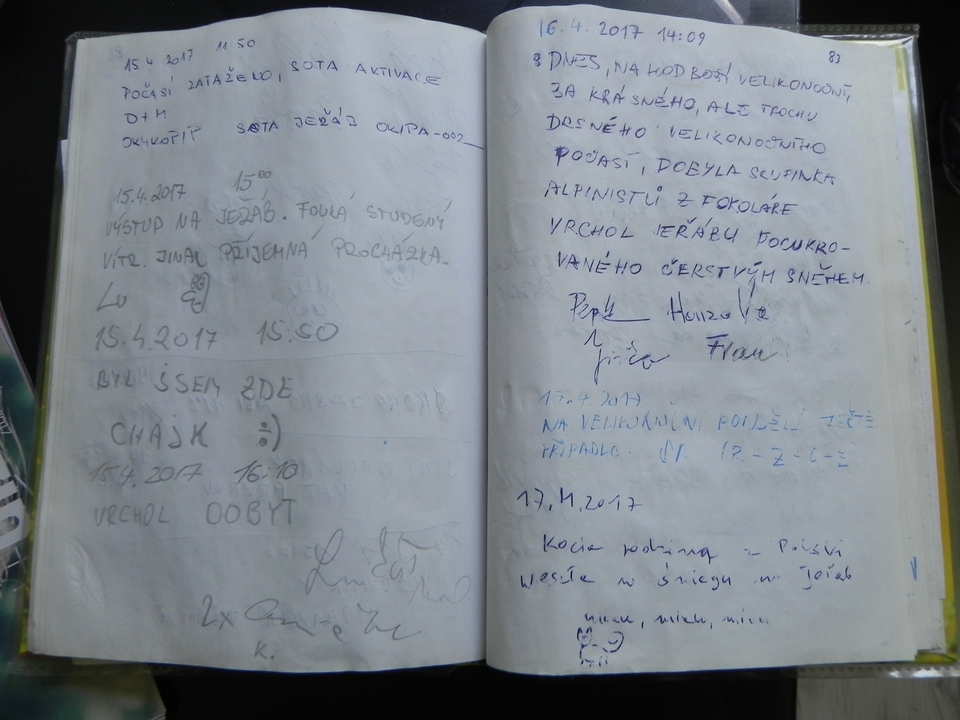 15.4 2017 11 50
POČASÍ ZATAŽENO, SOTA AKTIVACE
O+M
SOTA JEŘÁB OK/PA-002
15.4.2017 15⁰⁰
VÝSTUP NA JEŽÁB. FOULÁ STUDENÝ
VÍTR. JINAK PŘÍJEMNÁ PROCHÁZKA.
15.4.2017 15:50
BYL JSEM ZDE
CHAJK :)
15.4.2017 16:10
VRCHOL DOBYT
2x
K.
83
16.4. 2017 14:09
DNES, NA HOD BOŽÍ VELIKONOČNÍ,
ZA KRÁSNÉHO, ALE TROCHU
DRSNÉHO VELIKONOČNÍHO
POČASÍ, DOBYLA SKUPINKA
ALPINISTŮ Z FOKOLÁRE
VRCHOL JEŘÁBU POCUKRO-
VANÉHO ČERSTVÝM SNĚHEM.
Honza
17.4 2017
NA VELIKONOČNÍ PONDĚLÍ JEŠTĚ
17.4.2017
Kocia rodzina z Polski
weszła w śniegu na Jeřab
miau, miau, miau